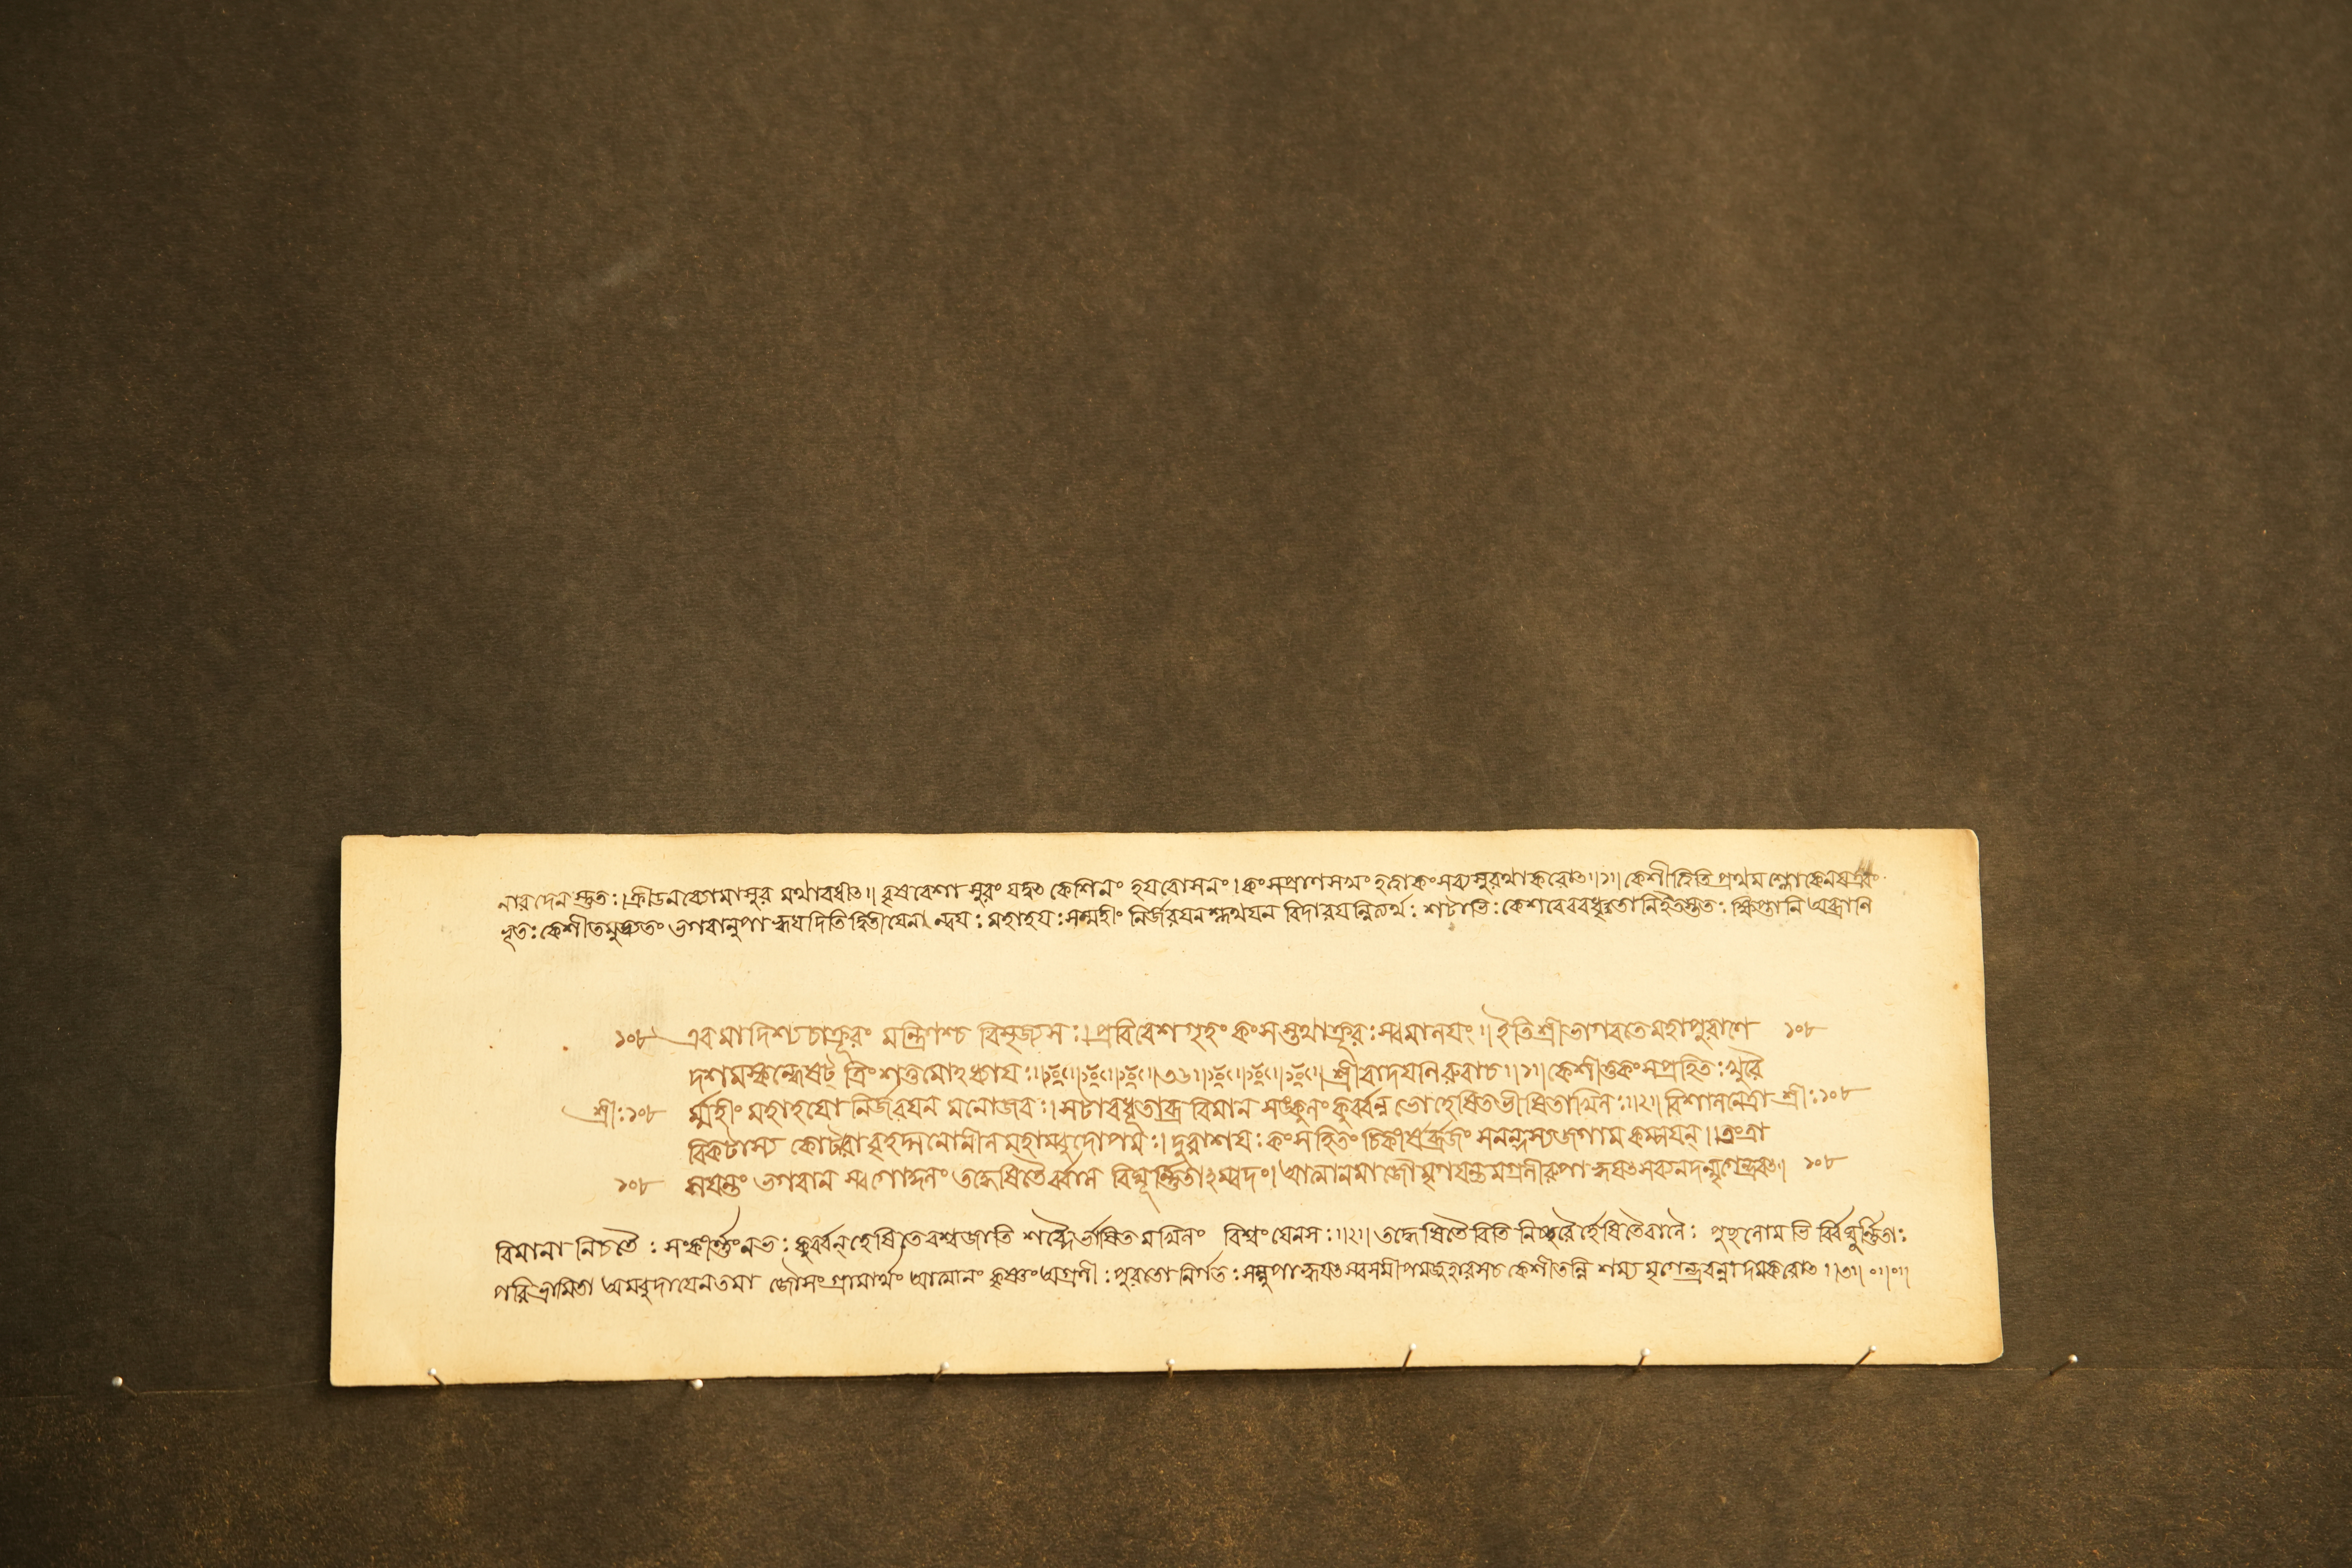 নারদেন স্তুতঃ।ক্রীডনব্যোমাসুর মথাবধীৎ॥ বৃষবেশা সুরং যদ্বৎ কেশিনং হযবোসনং।কংসপ্রাণসমং হত্বাকংসব্যসুরথাকরোৎ॥১॥কেশীত্বিতি প্রথম শ্লোকেন
কেশীতমুদ্ধতং ভগবানুপাহ্বযদিতি দ্বিতীযেনান্বযঃ মহাহযঃসন্মহীং নির্জরযন বিদারযন্নিত্যর্থঃ শটাভিঃকেশরৈরবধূতানিইতস্ততঃ ক্ষিপ্তানি অভ্রানি
১০৮ এবমাদিশ্যচাক্রূরং মন্ত্রিণশ্চ বিসৃজ্যসঃ।প্রবিবেশগৃহং কংসস্তথাক্রূরঃস্বমালযং॥ইতিশ্রীভাগবতেমহাপুরাণে ১০৮
দশমস্কন্ধেষট্ ত্রিংশত্তমোঽধ্যাযঃ॥৩৬॥শ্রীবাদযানিরুবাচ॥১॥কেশীতুকংসপ্রহিতঃখুরৈ
শ্রীঃ১০৮ র্ম্মহীং মহাহযো নির্জরযন মনোজবঃ।সটাবধূতাভ্র বিমান সঙ্কুলং কুর্ব্বন্ন ভোহেষিতভীষিতাখিলঃ॥২॥বিশালনেত্রা শ্রীঃ১০৮
বিকটাস্য কোটরা বৃহদ্গলোনীল মহাম্বুদোপমঃ।দুরাশযঃকংসহিতং চিকীর্ষুর্ব্রজং সনন্দস্যজগাম কম্পযন্॥তংত্রা
১০৮ সযন্তং ভগবান স্বগোকুলং তদ্ধেষিতৈর্ব্বাল বিঘূর্ন্নিতাম্বুদং।আত্মানমাজৌমৃগযন্তমগ্রনীরুপাহ্বযৎসব্যনদন্মৃগেন্দ্রবৎ॥ ১০৮
বিমানা নিচতৈঃ সংকীর্ত্তংনভঃকুর্ব্বন্হেষিতেরশ্বজাতি শব্দৈর্ভীষিতমখিলং বিশ্বং যেনসঃ॥২॥তদ্ধেষিতৈ রিতি নিষ্ঠুরৈর্হেষিতৈবালৈঃ পুছলোমভি র্বিঘূর্ণ্ণিতাঃ
পরিভ্রামিতা অম্বুদাযেনতমা জৌসংগ্রামার্থং আত্মানং কৃষ্ণংঅগ্রণীঃপুরতো নির্গতঃসন্নুপাহ্বযৎস্বসমীপমজুহারসচ কেশীতন্নি শম্য মৃগেন্দ্রবন্নাদমকরোৎ॥৩॥০॥০॥